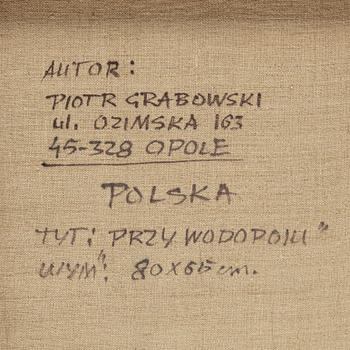 AUTOR:
PIOTR GRABOWSKI
ul. OZIMSKA 163
45-328 OPOLE
POLSKA
TYT: PRZY WODOPOJU"
WYM": 80X65 cm.